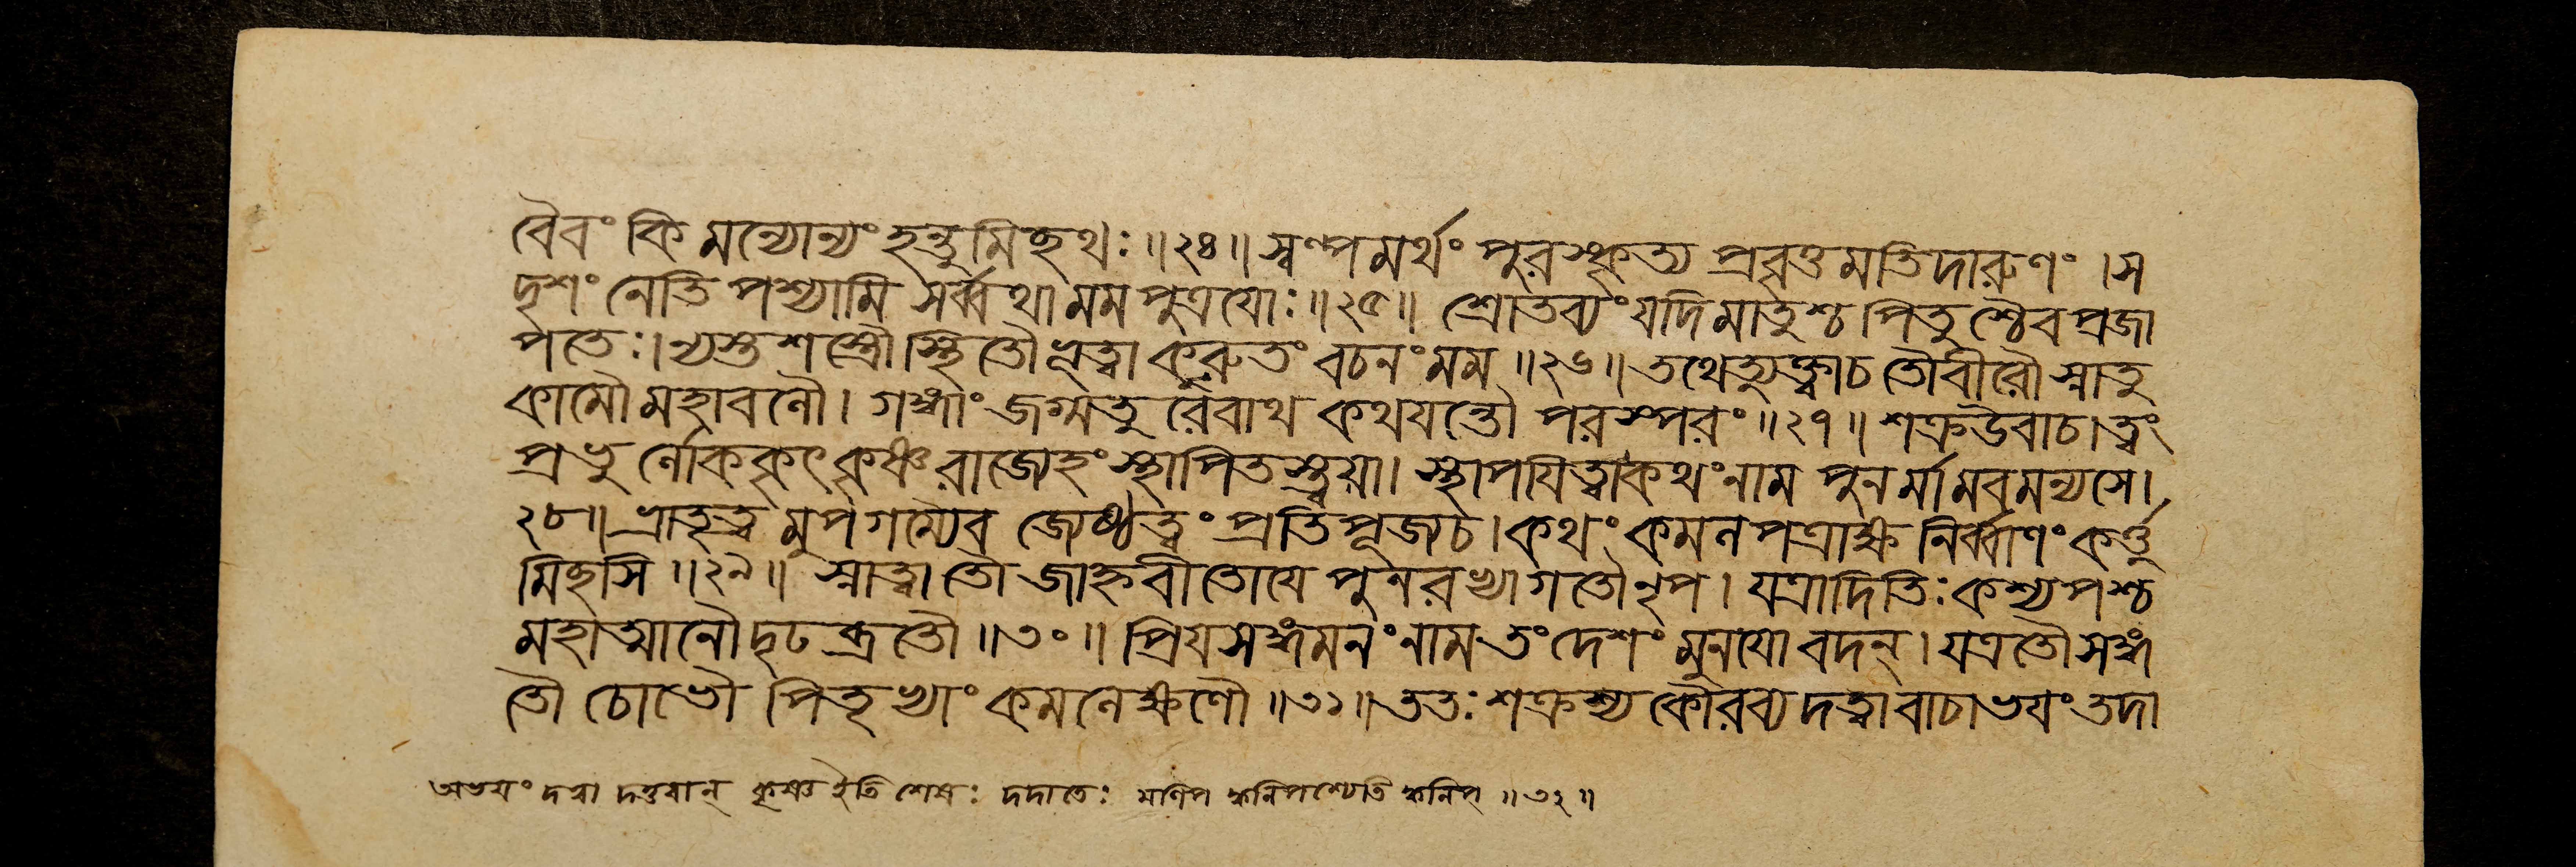 বৈবং কিমন্যোন্যং হন্তুমিছথঃ॥২৪॥ স্বল্পমর্থং পুরস্কৃত্য প্রবৃত্তমতিদারুণং ।স
দৃশং নেতি পশ্যামি সর্ব্বথা মম পুত্রযোঃ॥২৫॥ শ্রোতব্যং যদি মাতুশ্চ পিতুশ্চৈব প্রজা
পতেঃ। ন্যস্তশস্ত্রৌ স্থিতৌ ভূত্বা কুরুতং বচনং মম ॥২৬॥ তথেত্যুক্ত্বা চ তৌ বীরৌ স্নাতু
কামৌ মহাবলৌ। গঙ্গাং জগ্মতুরেবাথ কথযন্তৌ পরস্পরং ॥২৭॥ শক্রউবাচ। ত্বং
প্রভুর্লোককৃৎকৃষ্ণ রাজ্যেহং স্থাপিতস্ত্বয়া। স্থাপযিত্বা কথং নাম পুনর্মামবমন্যসে।
২৮॥ ভ্রাতৃত্বমুপগম্যৈব জ্যেষ্ঠত্বং প্রতিপূজ্য চ। কথং কমলপত্রাক্ষ নির্ব্বাণং কর্ত্তু
মিছসি ॥২৯॥ স্নাত্বা তৌ জাহ্নবীতোযে পুনরভ্যাগতৌ নৃপ। যত্রাদিতিঃ কশ্যপশ্চ
মহাত্মানৌ দৃঢব্রতৌ ॥৩০॥ প্রিযসঙ্গমনং নাম তং দেশং মুনযো বদন্। যত্র তৌ সঙ্গ
তৌ চোভৌ পিতৃভ্যাং কমলেক্ষণৌ ॥৩১॥ ততঃ শক্রস্য কৌরব্য দত্বা বাচাভযং তদা
অভযং দত্বা দত্তবান্ কৃষ্ণ ইতি শেষঃ দদাতেঃ ॥৩২॥